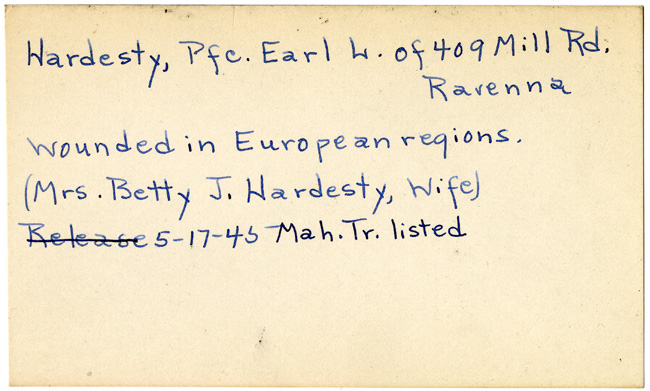 Hardesty, Pfc. Earl W. of 409 Mill Rd.
Ravenna
wounded in European regions.
(Mrs. Betty J. Hardesty, Wife)
Release 5-17-45 Mah. Tr. listed